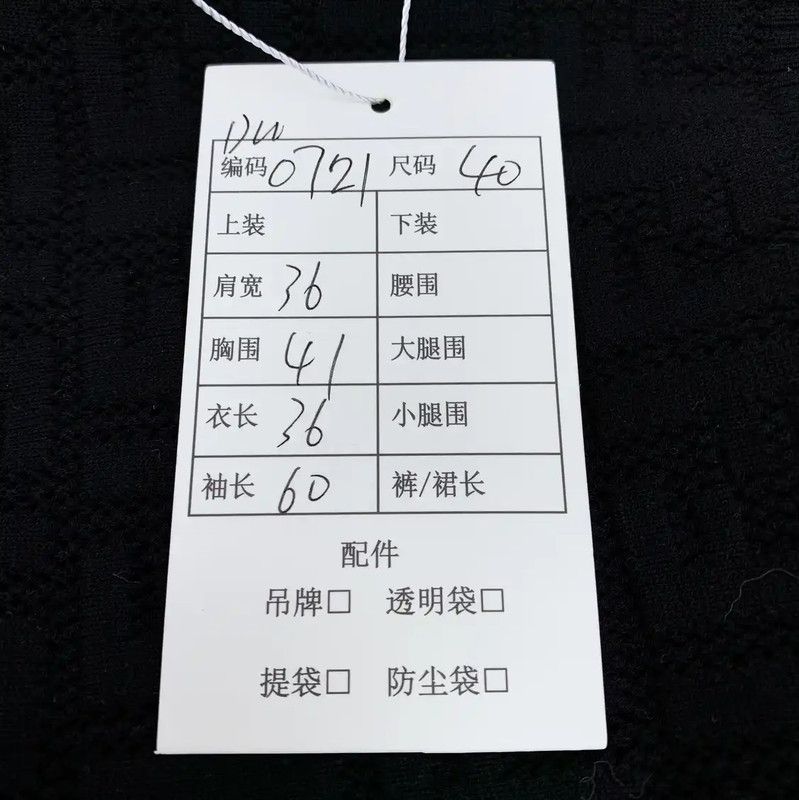 DW
编码 0721 尺码 40
上装 下装
肩宽 36 腰围
胸围 41 大腿围
衣长 36 小腿围
袖长 60 裤/裙长
配件
吊牌□ 透明袋□
提袋□ 防尘袋□